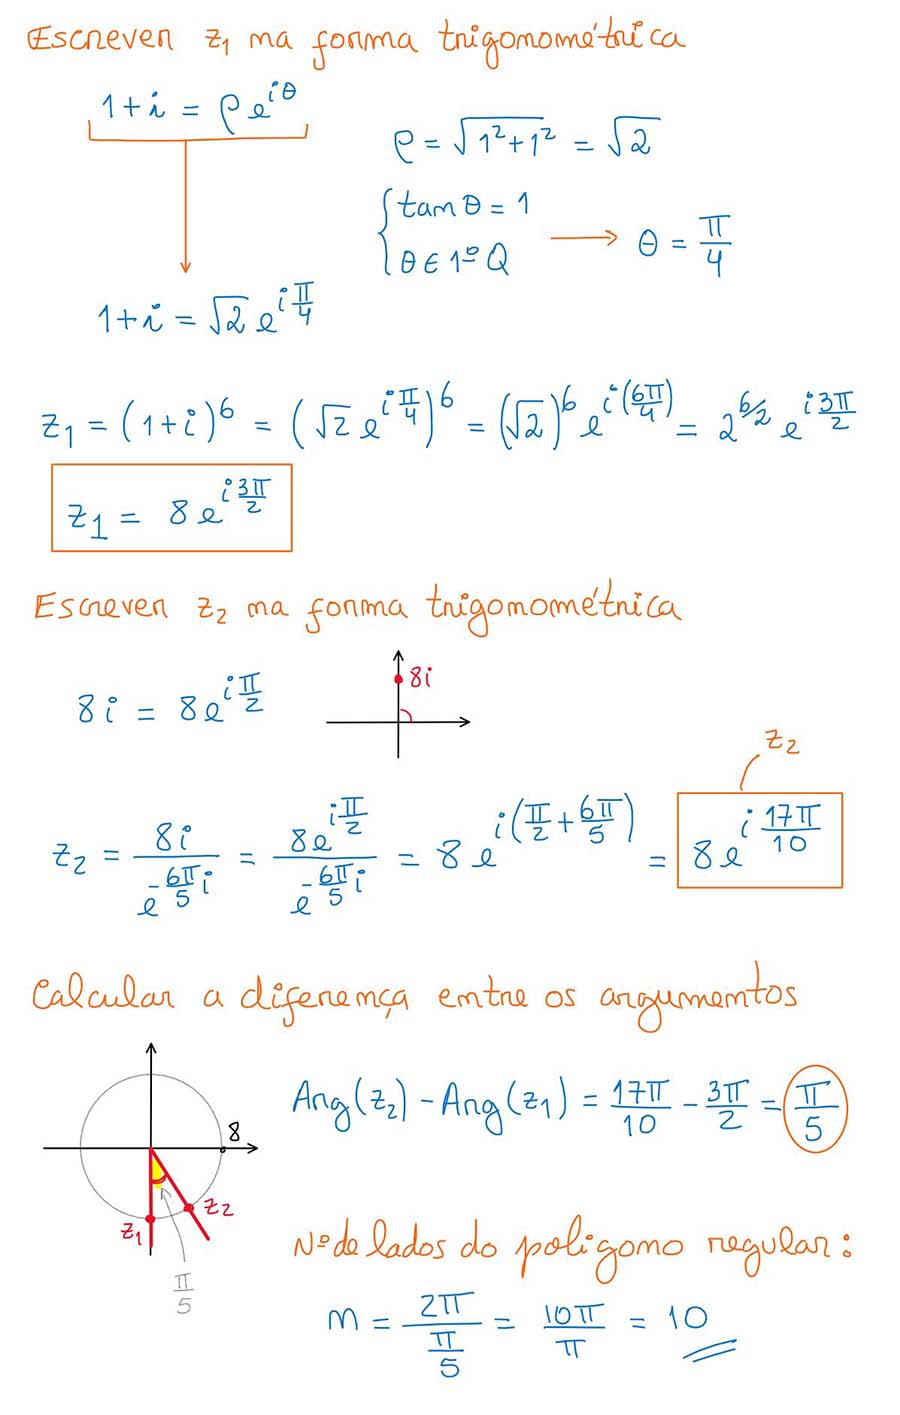 Escrever z₁ na forma trigonométrica
1+i = ρe^{iθ}
ρ = √(1²+1²) = √2
{ tan θ = 1
θ ∈ 1º Q → θ = π/4
1+i = √2 e^{i π/4}
z₁ = (1+i)⁶ = (√2 e^{i π/4})⁶ = (√2)⁶ e^{i(6π/4)} = 2^{6/2} e^{i 3π/2}
z₁ = 8e^{i 3π/2}
Escrever z₂ na forma trigonométrica
8i
8i = 8e^{i π/2}
z₂
z₂ = 8i / e^{-6π/5 i} = 8e^{i π/2} / e^{-6π/5 i} = 8e^{i(π/2 + 6π/5)} = 8e^{i 17π/10}
Calcular a diferença entre os argumentos
Arg(z₂) - Arg(z₁) = 17π/10 - 3π/2 = π/5
8
z₂
z₁
π/5
Nº de lados do polígono regular:
n = 2π / (π/5) = 10π/π = 10